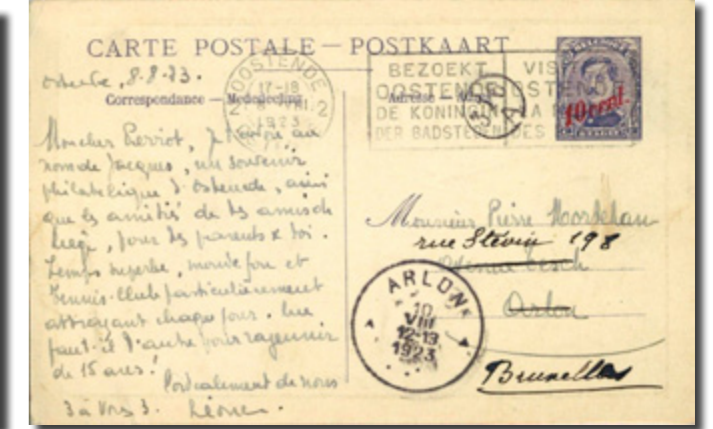 CARTE POSTALE — POSTKAART
Ostende, 8.8.23.
Correspondance — Mededeeling
OOSTENDE
17-18
8 VIII
1923
2
BEZOEKT
OOSTENDE
DE KONINGIN
DER BADSTEDEN
VISITEZ
OSTENDE
LA
DES
BELGIQUE
10 cent.
Mon cher Pierrot, je t'envoie au
nom de Jacques, un souvenir
philatélique d'Ostende, ainsi
que les amitiés de tes amis de
Liège, pour tes parents & toi.
Temps superbe, monde fou et
Tennis-Club particulièrement
attrayant chaque jour. Que
faut-il d'autre pour rajeunir
de 15 ans!
Postcalement de nous
3 à vous 3. Léone.
Monsieur Pierre
rue Stévin 198
Arlon
Bruxelles
ARLON
10
VIII
12-13
1923